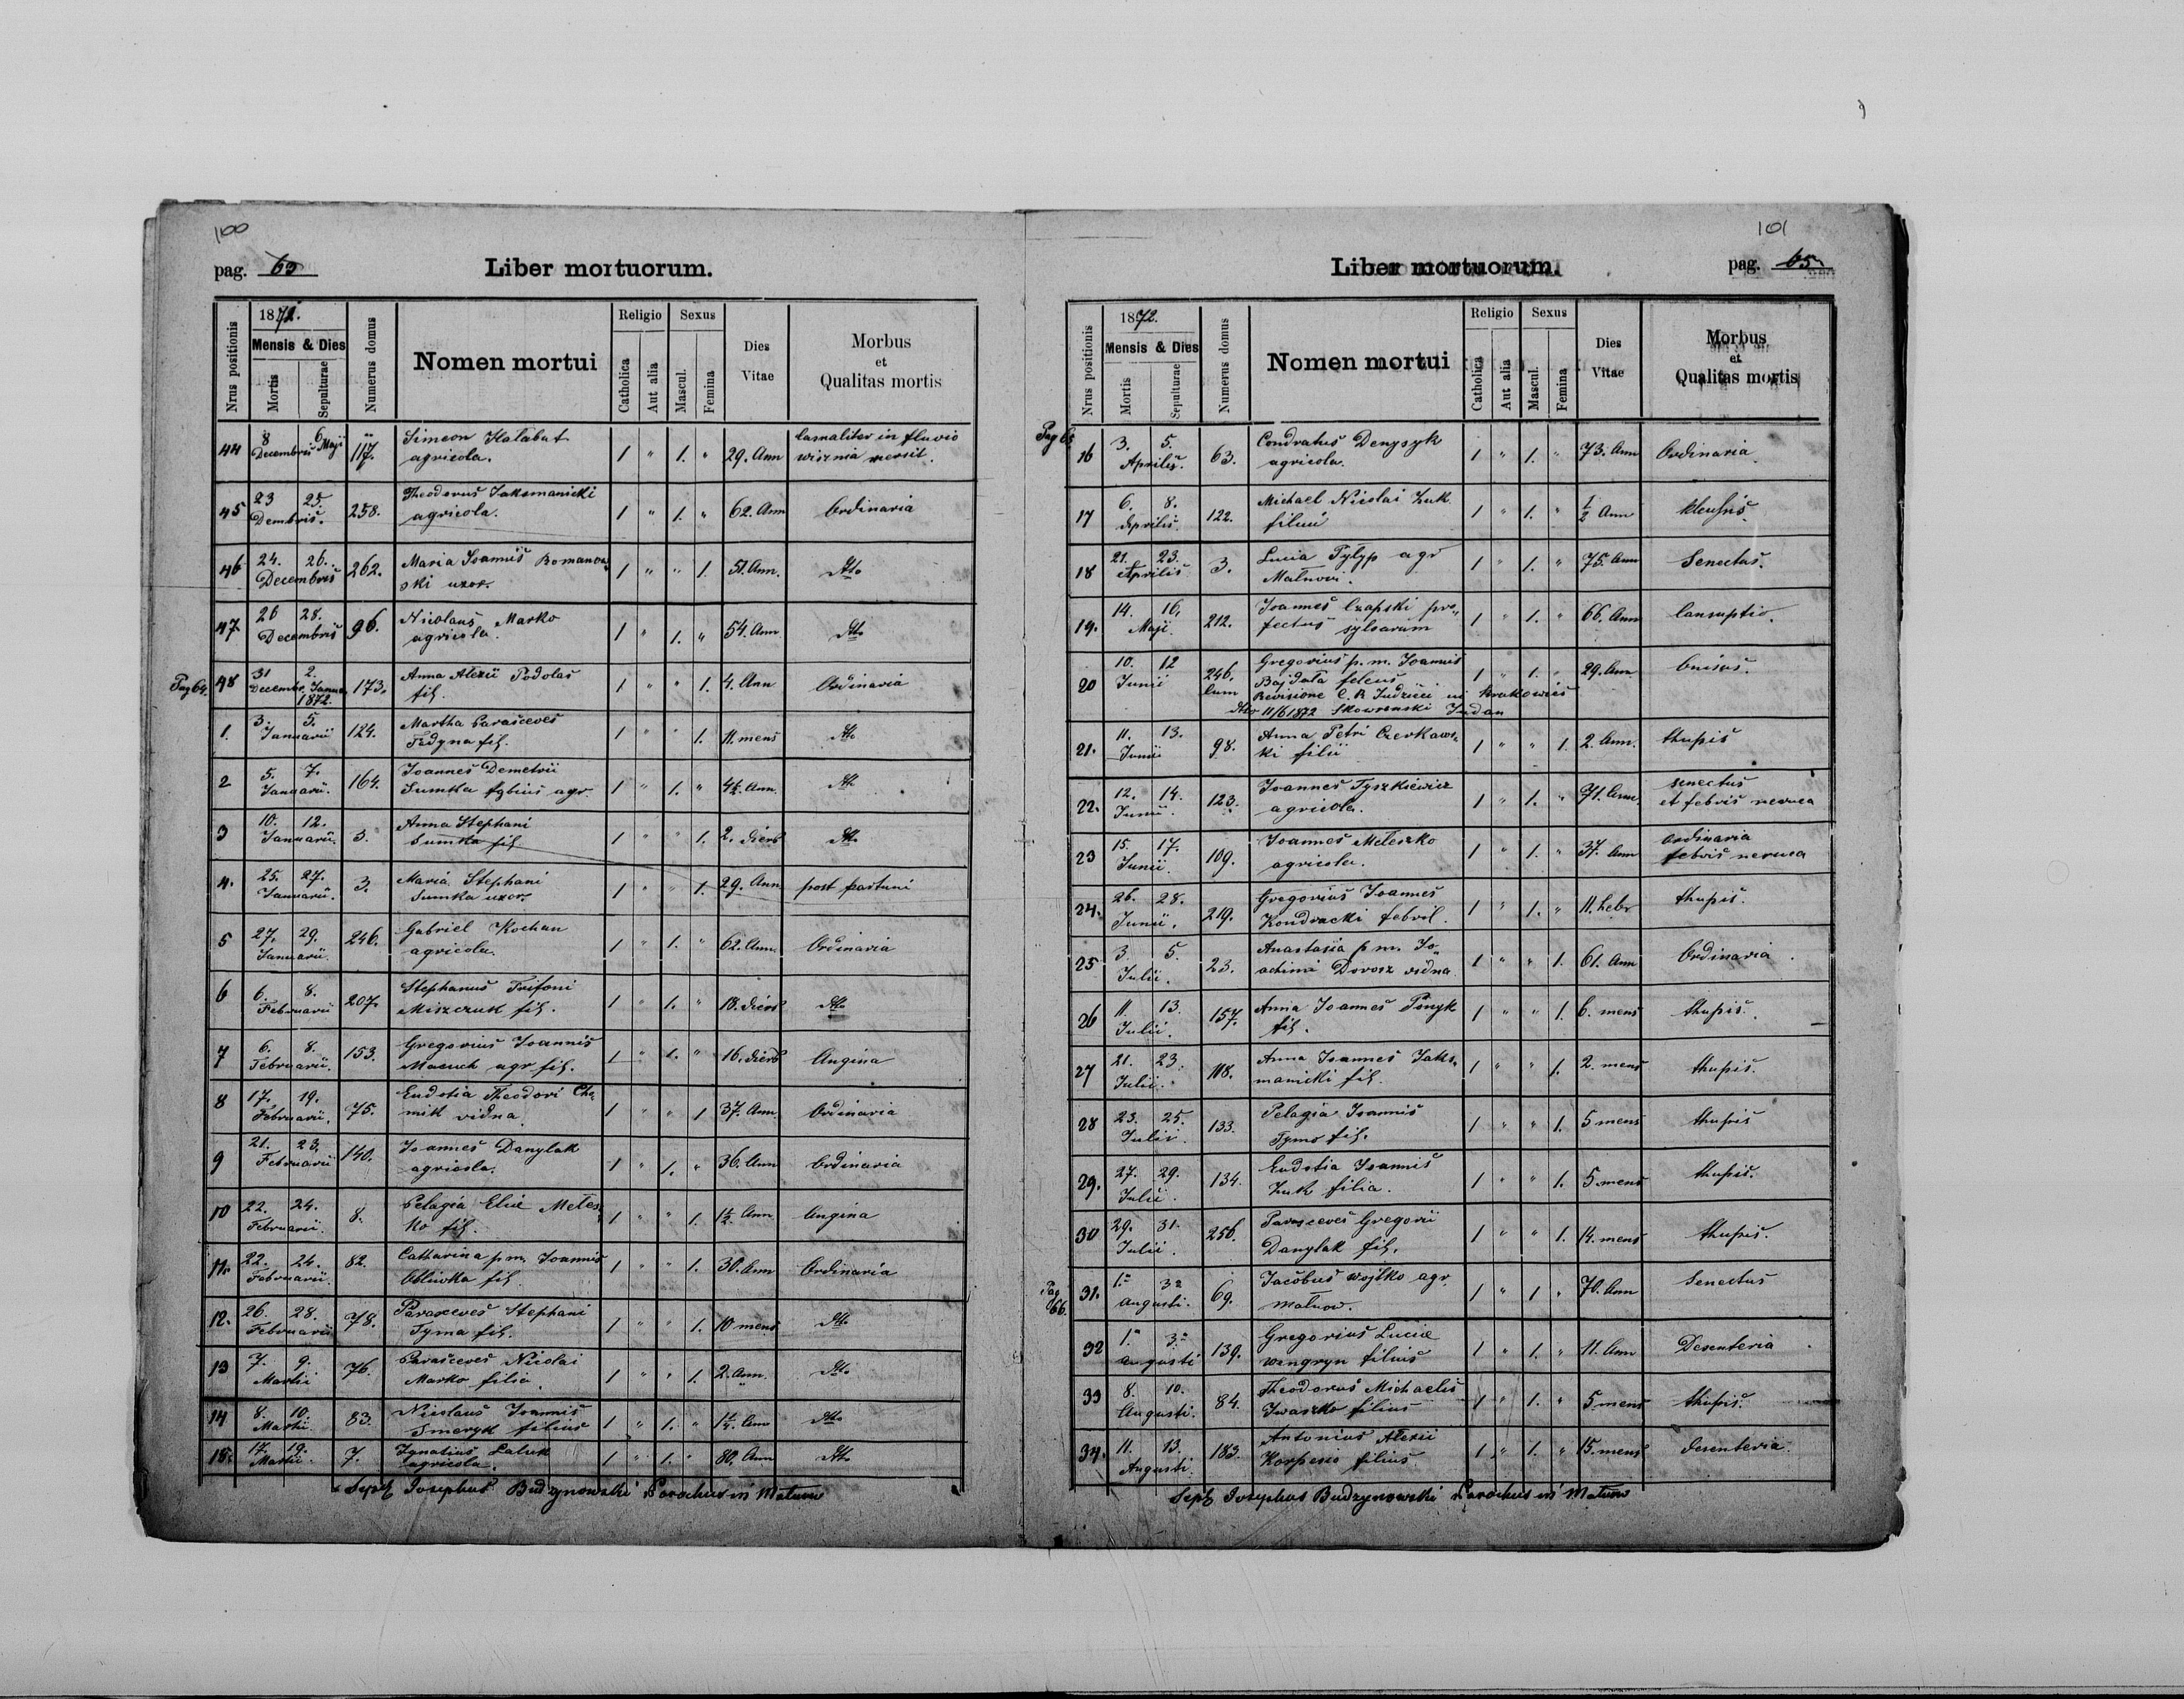 100
pag. 63
Liber mortuorum.
Nrus positionis
1872.
Mensis & Dies
Mortis
Sepulturae
Numerus domus
Nomen mortui
Religio
Catholica
Aut alia
Sexus
Mascul.
Femina
Dies Vitae
Morbus
et
Qualitas mortis
44 8 Decembris 6 Maji 117. Simeon 1 " 1. " 29. Ann in fluvio
agricola. wisznia mersit.
45 23 25. 258. Theodorus Jaksmanicki 1 " 1. " 62. Ann Ordinaria
Dembris. agricola.
46 24. 26. 262. Maria Joannis Romanow„ 1 " " 1. 51. Ann. dtto
Decembris ski uxor.
47 26 28. 96. Nicolaus Marko 1 " 1. " 54. Ann. dtto
Decembris agricola.
Pag 64. 48 31 2. 173. Anna Alexii Podolas 1 " " 1. 4. Ann Ordinaria
Decembr. Janua. fil.
1872.
1. 3. 5. 124. Martha Parasceves 1 " " 1. 11. mens dtto
Januarii Fedyna fil.
2 5. 7. 164. Joannes Demetrii 1 " 1. " Ann. dtto
Januarii. Sumka agr.
3 10. 12. 3. Anna Stephani 1 " " 1. 2. dieb dtto
Januarii. Sumka fil
4. 25. 27. 3. Maria Stephani 1 " " 1. 29. Ann post partum
Januarii. Sumka uxor.
5 27. 29. 246. Gabriel Kochan 1 " 1. " 62. Ann. Ordinaria
Januarii. agricola.
6 6. 8. 207. Stephanus Trifoni 1 " 1. " 18. dieb dtto
Februarii Miszczuk fil.
7 6. 8. 153. Gregorius Joannis 1 " 1. " 16. dieb Angina
Februarii. Macuch agr fil.
8 17. 19. 75. Eudotia Theodori Cho„ 1 " " 1 37. Ann. Ordinaria
Februarii. mik vidua.
9 21. 23. 140. Joannes Danylak 1 " 1. " 36. Ann Ordinaria
Februarii agricola.
10 22. 24. 8. Pelagia Elia Metes„ 1 " " 1. 1½ Ann Angina
Februarii. ko fil.
11. 22. 24. 82. Catharina p.m. Joannis 1 " " 1. 30. Ann Ordinaria
Februarii. Obliwka fil.
12. 26. 28. 78. Parasceves Stephani 1 " " 1. 10 mens dtto
Februarii Tyma fil.
13 7. 9. 76. Parasceves Nicolai 1 " " 1. 2. Ann. dtto
Martii Marko filia
14 8. 10. 83. Nicolaus Joannis 1 " 1. " Ann dtto
Martii. Smeryk filius
15. 17. 19. 7. Ignatius Laluk 1 " 1. " 80. Ann dtto
Martii. agricola.
Josephus Budzynowski Parochus in Matnow
101
Liber mortuorum.
pag. 65
Nrus positionis
1872.
Mensis & Dies
Mortis
Sepulturae
Numerus domus
Nomen mortui
Religio
Catholica
Aut alia
Sexus
Mascul.
Femina
Dies Vitae
Morbus
et
Qualitas mortis
Pag 65 16 3. 5. 63. Condratus Denysyk 1 " 1. " 73. Ann Ordinaria
Aprilis. agricola.
17 6. 8. 122. Michael Nicolai Zuk 1 " 1. " ½ Ann
Aprilis filius
18 21. 23. 3. Lucia Pylyp agr 1 " 1. " 75. Ann Senectus.
Aprilis Matnow.
19. 14. 16. 212. Joannes Czapski pre„ 1 " 1. " 66. Ann
Maji. fectus sylvarum
20 10. 12 246. Gregorius p.m. Joannis 1 " 1. " 29. Ann
Junii Cum Bajdala
Revisione C. R. Judicii in Krakowiec
dtto 11/6 1872 Skowronski Judex
21. 11. 13. 98. Anna Petri Czerkaws„ 1 " " 1. 2. Ann. thupis
Junii ki filii
22. 12. 14. 123. Joannes Tyszkiewicz 1 " 1. " 71. Ann. senectus
Junii. agricola. et febris nervea
23 15. 17. 109. Joannes Meteszko 1 " 1. " 37. Ann Ordinaria
Junii. agricola. febris nervea
24. 26. 28. 219. Gregorius Joannes 1 " 1. " 11. hebr thupis.
Junii. Kondracki
25 3. 5. 23. Anastasia p.m. Jo„ 1 " " 1. 61. Ann Ordinaria
Julii. achimi Dorosz vidua.
26 11. 13. 157. Anna Joannes Pinyk 1 " " 1. 6. mens thupis.
Julii. fil.
27 21. 23. 118. Anna Joannes Jaks„ 1 " " 1. 2. mens thupis.
Julii. manicki fil.
28 23. 25. 133. Pelagia Joannis 1 " " 1. 5 mens thupis
Julii. Tymo fil.
29. 27. 29. 134. Eudotia Joannis 1 " " 1. 5 mens thupis.
Julii. Zuk filia.
30 29. 31. 256. Parasceves Gregorii 1 " " 1. 14. mens thupis.
Julii. Danylak fil.
Pag 66. 31. 1. 3 69. Jacobus Wojtko agr. 1 " 1 " 70. Ann Senectus
Augusti. Matnow.
32 1. 3. 139. Gregorius Luciæ 1 " 1. " 11. Ann Desenteria
Augusti Wengryn filius
33 8. 10. 84. Theodorus Michaelis 1 " 1. " 5 mens thupis.
Augusti. Iwaszko filius
34. 11. 13. 183. Antonius Alexii 1 " 1. " 15. mens desenteria
Augusti. filius
Josephus Budzynowski Parochus in Matnow